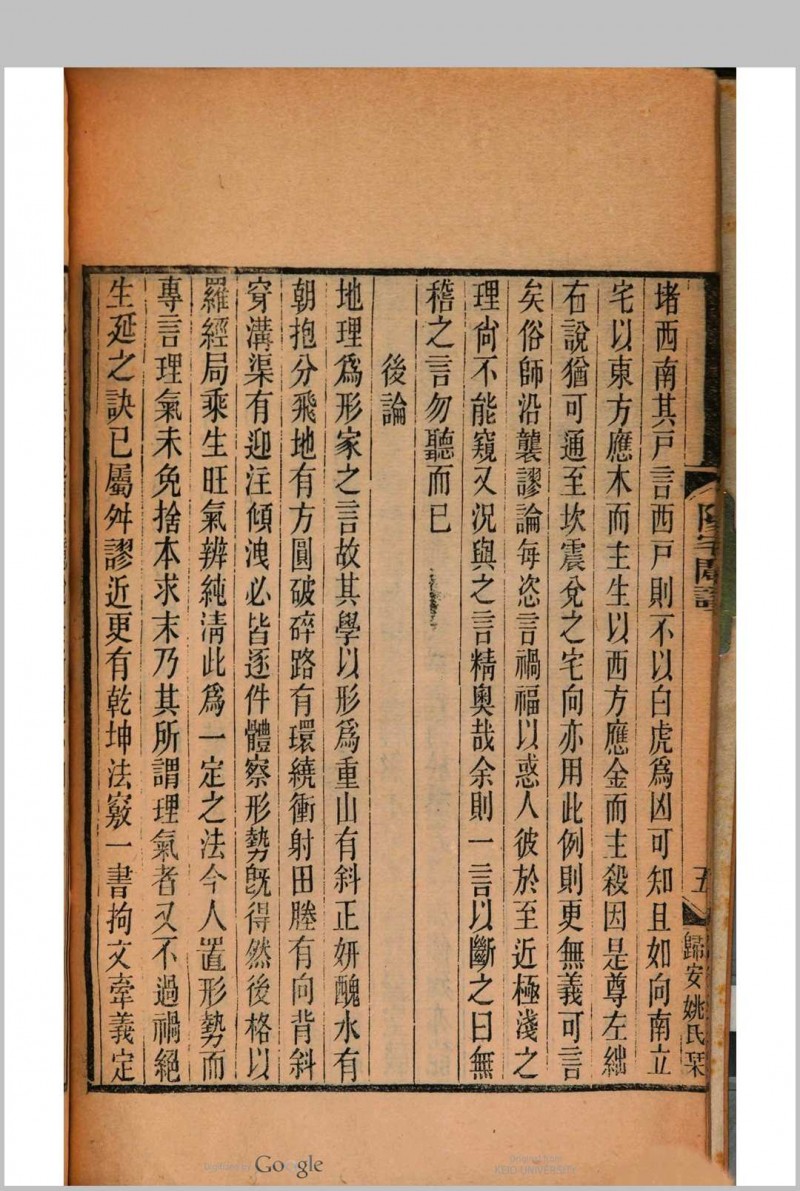 堵西南其戸言西戸則不以白虎爲凶可知且如向南立
宅以東方應木而主生以西方應金而主殺因是尊左絀
右說猶可通至坎震兌之宅向亦用此例則更無義可言
矣俗師沿襲謬論每恣言禍福以惑人彼於至近極淺之
理尙不能窺又況與之言精奧哉余則一言以斷之曰無
稽之言勿聽而已
後論
地理爲形家之言故其學以形爲重山有斜正妍醜水有
朝抱分飛地有方圓破碎路有環繞衝射田塍有向背斜
穿溝渠有迎注傾洩必皆逐件體察形勢旣得然後格以
羅經局乘生旺氣辨純淸此爲一定之法今人置形勢而
專言理氣未免捨本求末乃其所謂理氣者又不過禍絕
生延之訣已屬舛謬近更有乾坤法竅一書拘文牽義定
五
歸安姚氏栞
Google
KEIO UNIVERSITY